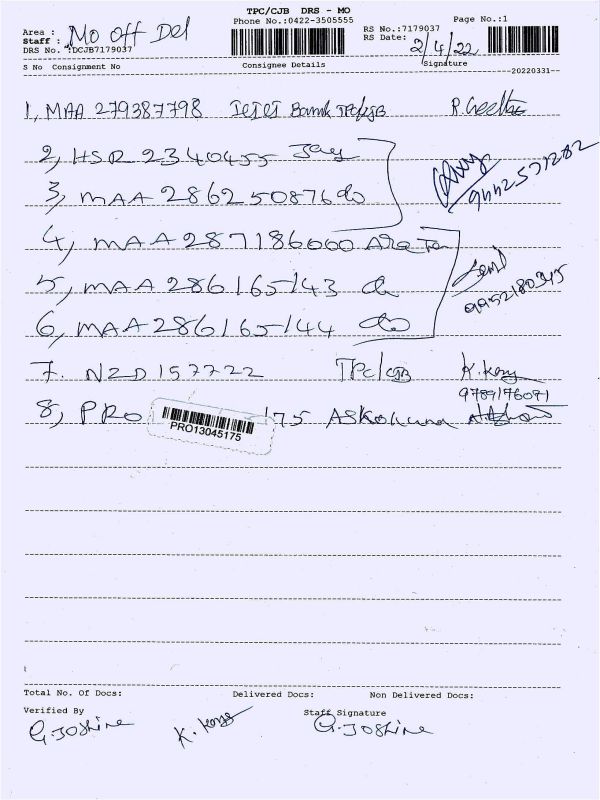 TPC/CJB DRS - MO
Phone No.:0422-3505555
Page No.:1
Area :
Staff : Mo Off Del
DRS No. :DCJB7179037
RS No.:7179037
RS Date: 2/4/22
S No Consignment No Consignee Details Signature
20220331--
1, MAA 279387798 Bank TPC/CJB
2, HSR 2340455 Jay
3, MAA 286250876 do
9442571282
4, MAA 287186000
5, MAA 286165143 do
9952180345
6, MAA 286165144 do
7. NZD 157722 TPC/CJB K. Kany
9789176071
8, PRO 175
PRO13045175
Total No. Of Docs: Delivered Docs: Non Delivered Docs:
Verified By Staff Signature
G. Joshine K. Kany G. Joshine